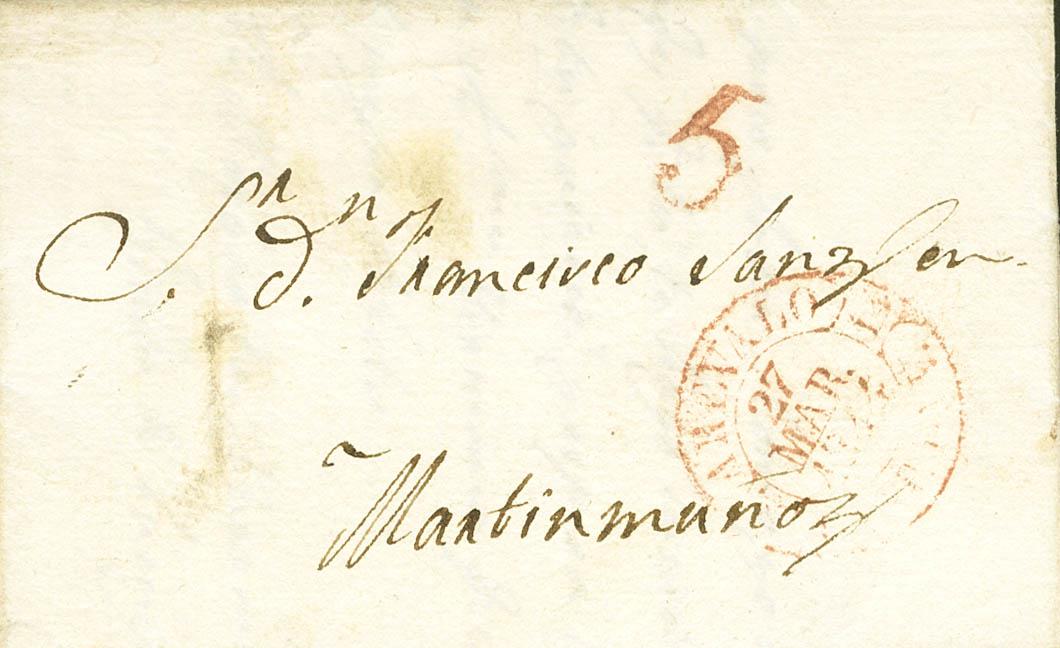 5
Sr. Dn. Francisco Sanz
Martinmuñoz
AREVALO
27
MAR.